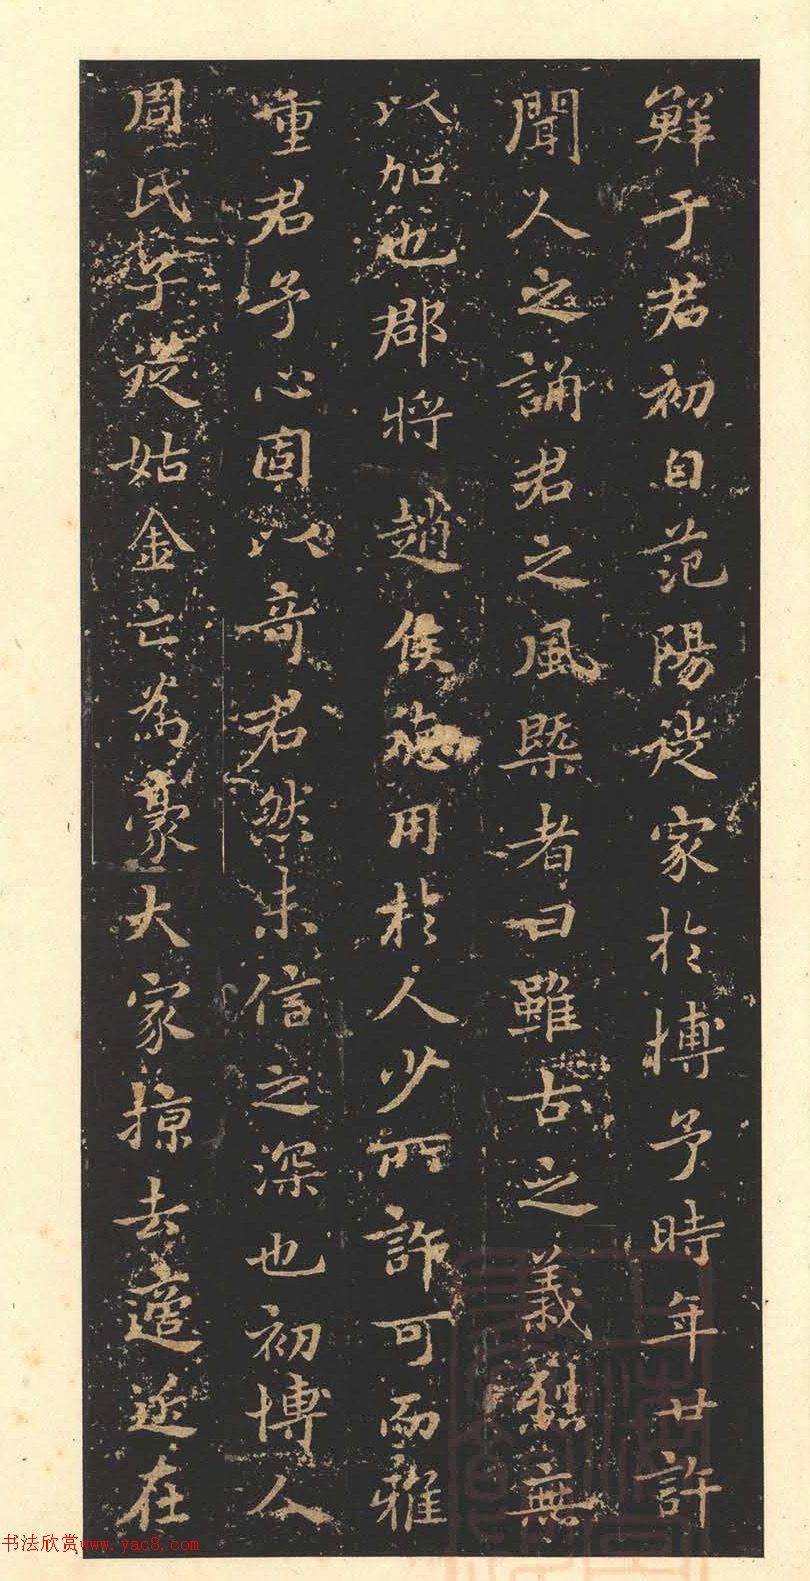 鮮于君初自范陽從家於博予時年廿許
聞人之誦君之風槩者曰雖古之義烈無
以加也郡將趙侯施用於人少所許可而雅
重君予心固以奇君然未信之深也初博人
周氏子從姑金亡為豪大家掠去適近在
书法欣赏www.yac8.com